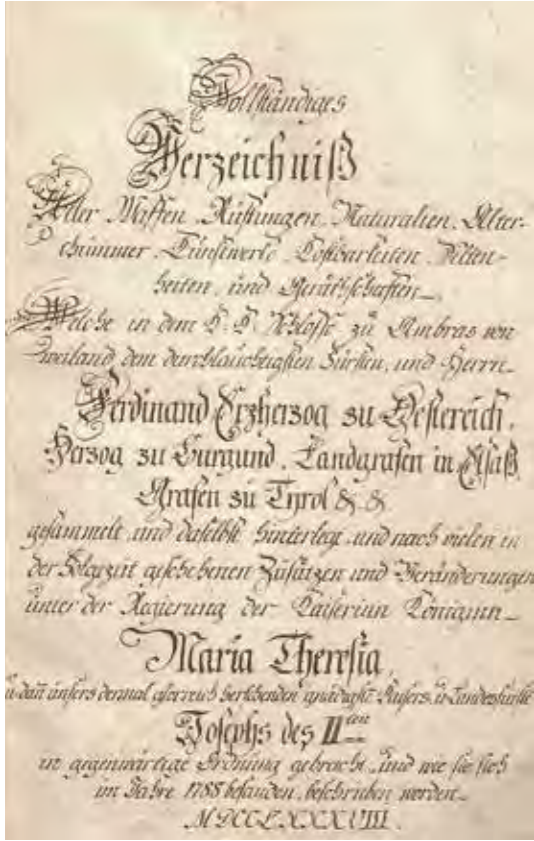 Vollständiges
Verzeichniß
Aller Waffen, Rüstungen, Naturalien, Alter-
thümmer, Kunstwerke, Kostbarkeiten, Selten-
heiten, und Geräthschaften
Welche in dem K. K. Schloße zu Ambras von
weiland dem durchlauchtigsten Fürsten, und Herrn
Ferdinand Erzherzog zu Oesterreich,
Herzog zu Burgund, Landgrafen in Elsaß,
Grafen zu Tyrol & &
gesammelt, und daselbst hinterlegt, und nach vielen in
der Folgezeit geschehenen Zusätzen und Veränderungen
unter der Regierung der Kaiserinn Königinn
Maria Theresia,
u. dañ unsers dermal glorreich herschenden gnädigst. Kaisers, u. Landesfürsten
Josephs des II ten
in gegenwärtige Ordnung gebracht, und wie sie sich
im Jahre 1788 befanden, beschrieben worden
MDCCLXXXVIII.